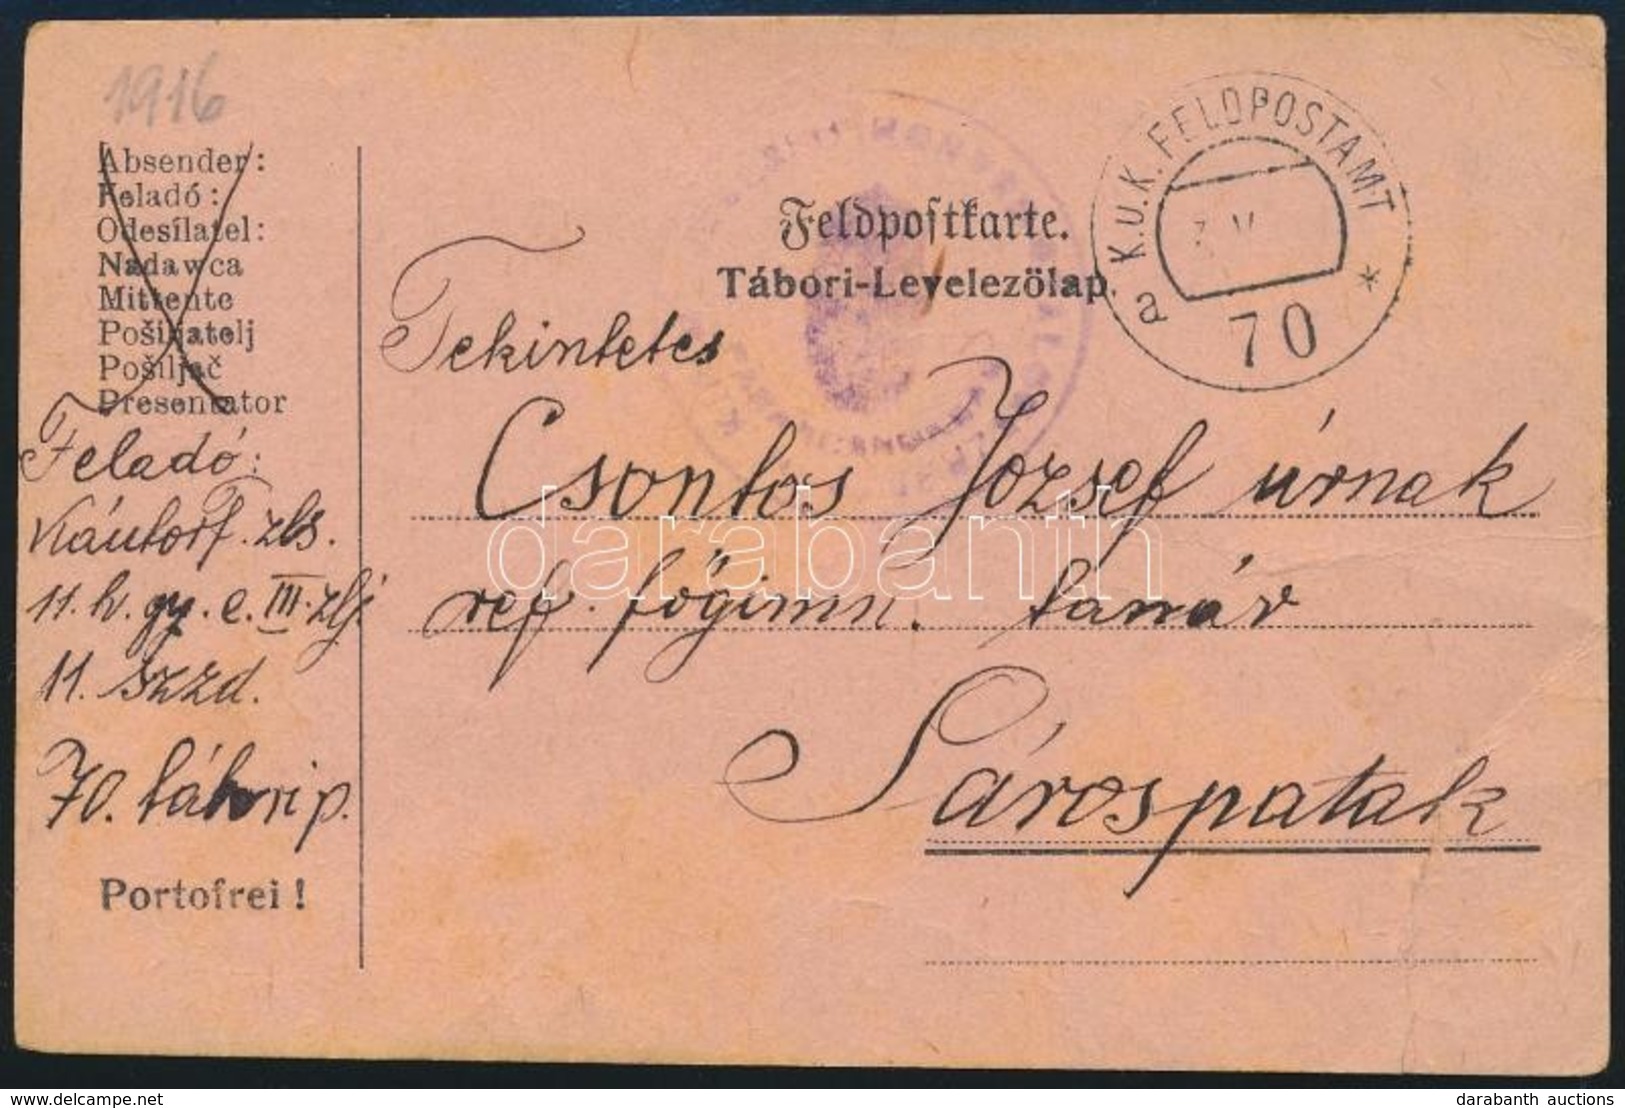 1916
Absender:
Feladó:
Odesílatel:
Nadawca
Mittente
Pošiljatelj
Pošiljač
Presentator
Feladó:
zls.
11. h. gy. e. III. zlj
11. szzd.
70. tábori p.
Portofrei!
K.U.K. FELDPOSTAMT
a 70 *
Feldpostkarte.
Tábori-Levelezőlap.
Tekintetes
Csontos József úrnak
ref. főgimn. tanár
Sárospatak
darabanth
delcampe.net
darabanth auctions